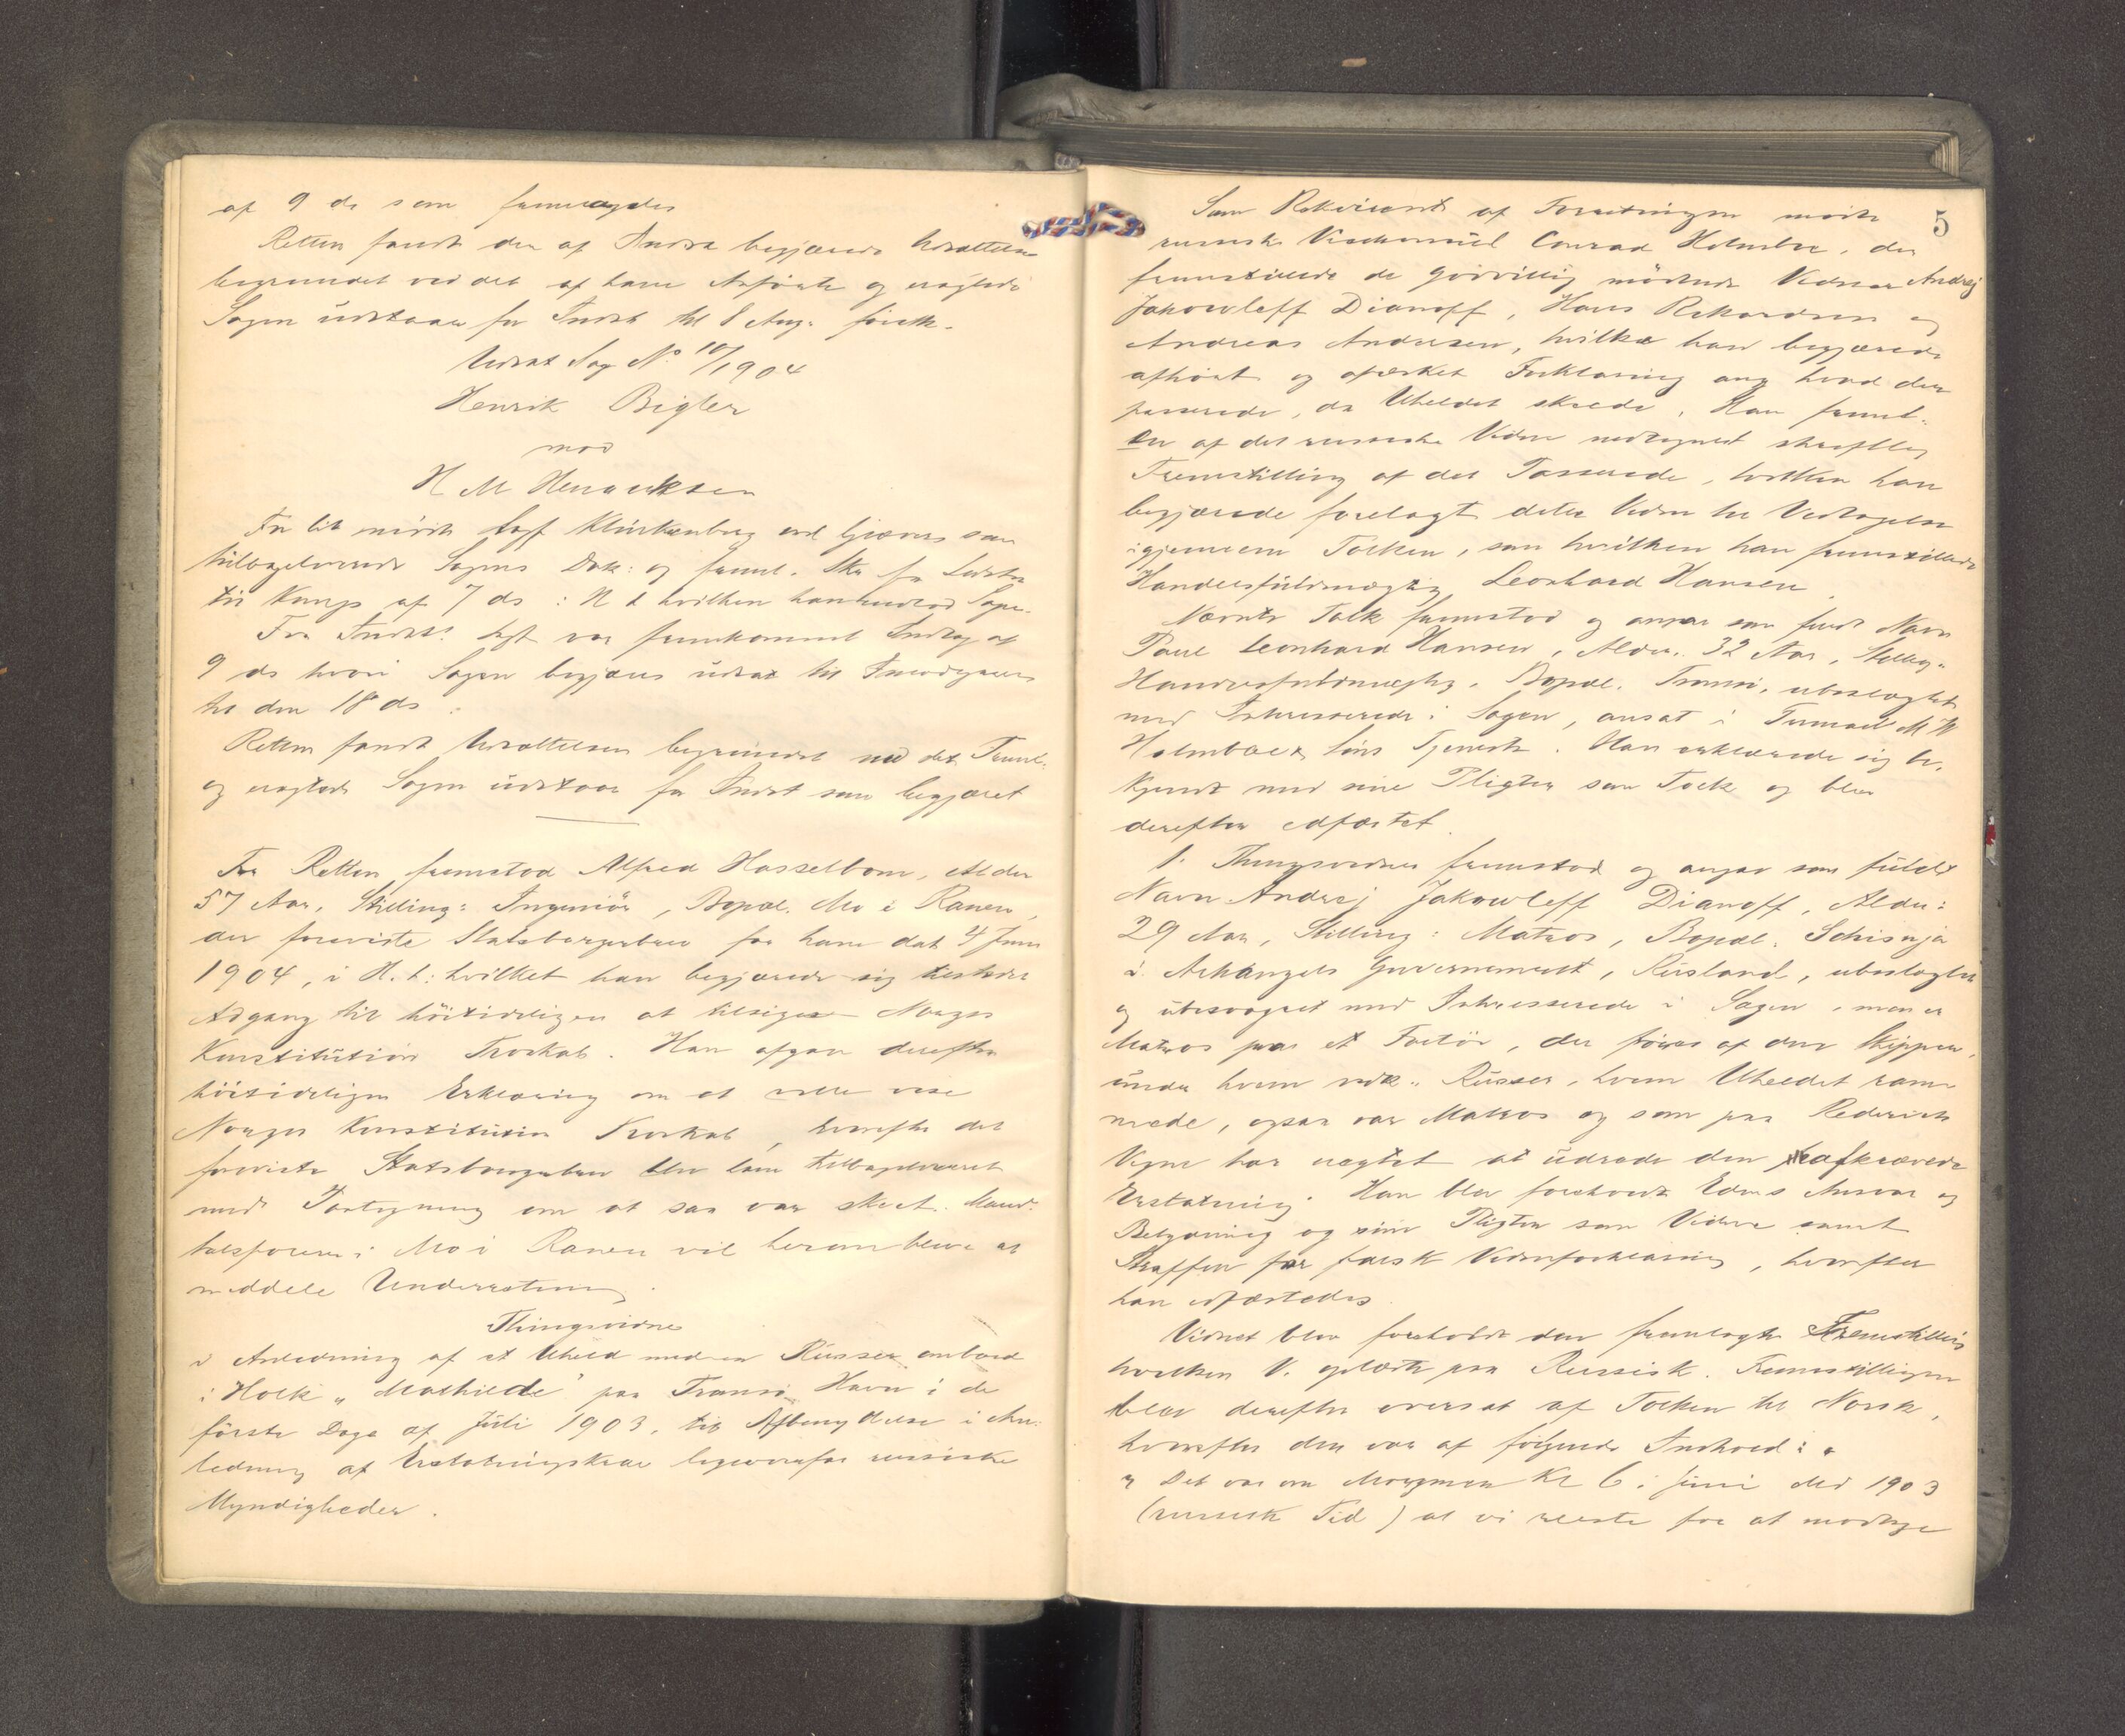 af 9 ds som fremlagdes
Retten fandt den af Indst begjærede Udsættelse
begrundet ved det af ham Anførte og eragtede
Sagen udstaar for Indst til 8 Aug: førstk.
Udsat Sag No 10/1904
Henrik Bigler
mod
H M Henriksen
For Cit mødte Sagf Klürkenberg ved som
tilbageleverede Sagens Dok: og freml. Skr fra
til Kamps af 7 ds : H t hvilken han Sagen.
For Indst: Sagf var fremkommet Indlæg af
9 ds hvori Sagen begjæres udsat til Imødegaaelse
til den 18 ds.
Retten fandt Udsættelsen begrundet ved det Freml.
og eragtede Sagen udstaar for Indst som begjæret
For Retten fremstod Alfred Hasselbom, Alder
57 Aar, Stilling: Ingeniør, Bopæl. Mo i Ranen,
der foreviste Statsborgerbrev for ham dat 4 Juni
1904, i H. t. hvilket han begjærede sig tilstedet
Adgang til høitideligen at tilsige Norges
Konstitution Troskab. Han afgav derefter
høitideligen Erklæring om at ville vise
Norges Konstitution Troskab, hvorefter det
foreviste Statsborgerbrev blev ham tilbageleveret
med Paategning om at saa var skeet. Mand-
talsføreren i Mo i Ranen vil herom blive at
meddele Underretning.
Thingsvidne
i Anledning af et Uheld med en Russer ombord
i Holk „Mathilde" paa Tromsø Havn i de
første Dage af Juli 1903, til Afbenyttelse i An-
ledning af Erstatningskrav ligeoverfor russiske
Myndigheder.
5
Som Rekvirent af Forretningen mødte
russisk Vicekonsul Conrad Holmboe, der
fremstillede de godvillig mødende Vidner Andrej
Jakowleff Dianoff, Hans Rikardsen og
Andreas Andersen, hvilke han begjærede
afhørt og afæsket Forklaring ang hvad der
passerede, da Uheldet skede. Han freml.
en af det russiske Vidne nedtegnet skriftlig
Fremstilling af det Passerede, hvilken han
begjærede forelagt dette Vidne til Vedtagelse
igjennem Tolken, som hvilken han fremstillede
Handelsfuldmægtig Leonhard Hansen.
Nævnte Tolk fremstod og angav som fuldt Navn
Paul Leonhard Hansen, Alder. 32 Aar, Stilling:
Handelsfuldmægtig, Bopæl. Tromsø, ubeslægtet
med Interesserede i Sagen, ansat i Firmaet M W
Holmboe & Søns Tjeneste. Han erklærede sig be-
kjendt med sine Pligter som Tolk og blev
derefter edfæstet.
1. Thingsvidne fremstod og angav som fuldt
Navn Andrej Jakowleff Dianoff, Alder:
29 Aar, Stilling: Matros, Bopæl. Schisnja
i Arkangels Guvernement, Rusland, ubeslægtet
og ubesvogret med Interesserede i Sagen, men er
Matros paa et Fartøi, der føres af den Skipper,
under hvem vedk. Russer, hvem Uheldet ram-
mede, ogsaa var Matros og som paa Rederiets
Vegne har nægtet at udrede den afkrævede
Erstatning. Han blev foreholdt Edens Ansvar og
Betydning og sine Pligter som Vidne samt
Straffen for falsk Vidneforklaring, hvorefter
han edfæstedes.
Vidnet blev foreholdt den fremlagte Fremstilling
hvilken V. oplæste paa Russisk. Fremstillingen
blev derefter oversat af Tolken til Norsk,
hvorefter den var af følgende Indhold:
„Det var om Morgenen Kl 6 i Juni Md 1903
(russisk Tid) at vi reiste for at modtage